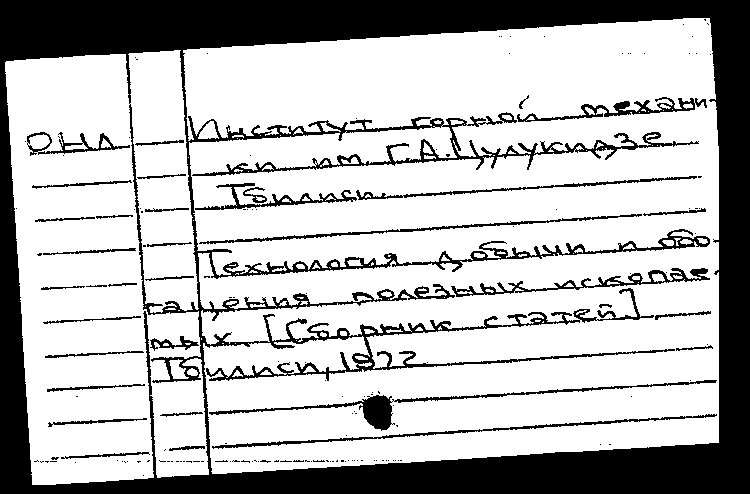 ОНЛ Институт горной механи-
ки им. Г.А.Цулукидзе.
Тбилиси.
Технология добычи и обо-
гащения полезных ископае-
мых. [Сборник статей].
Тбилиси, 1972